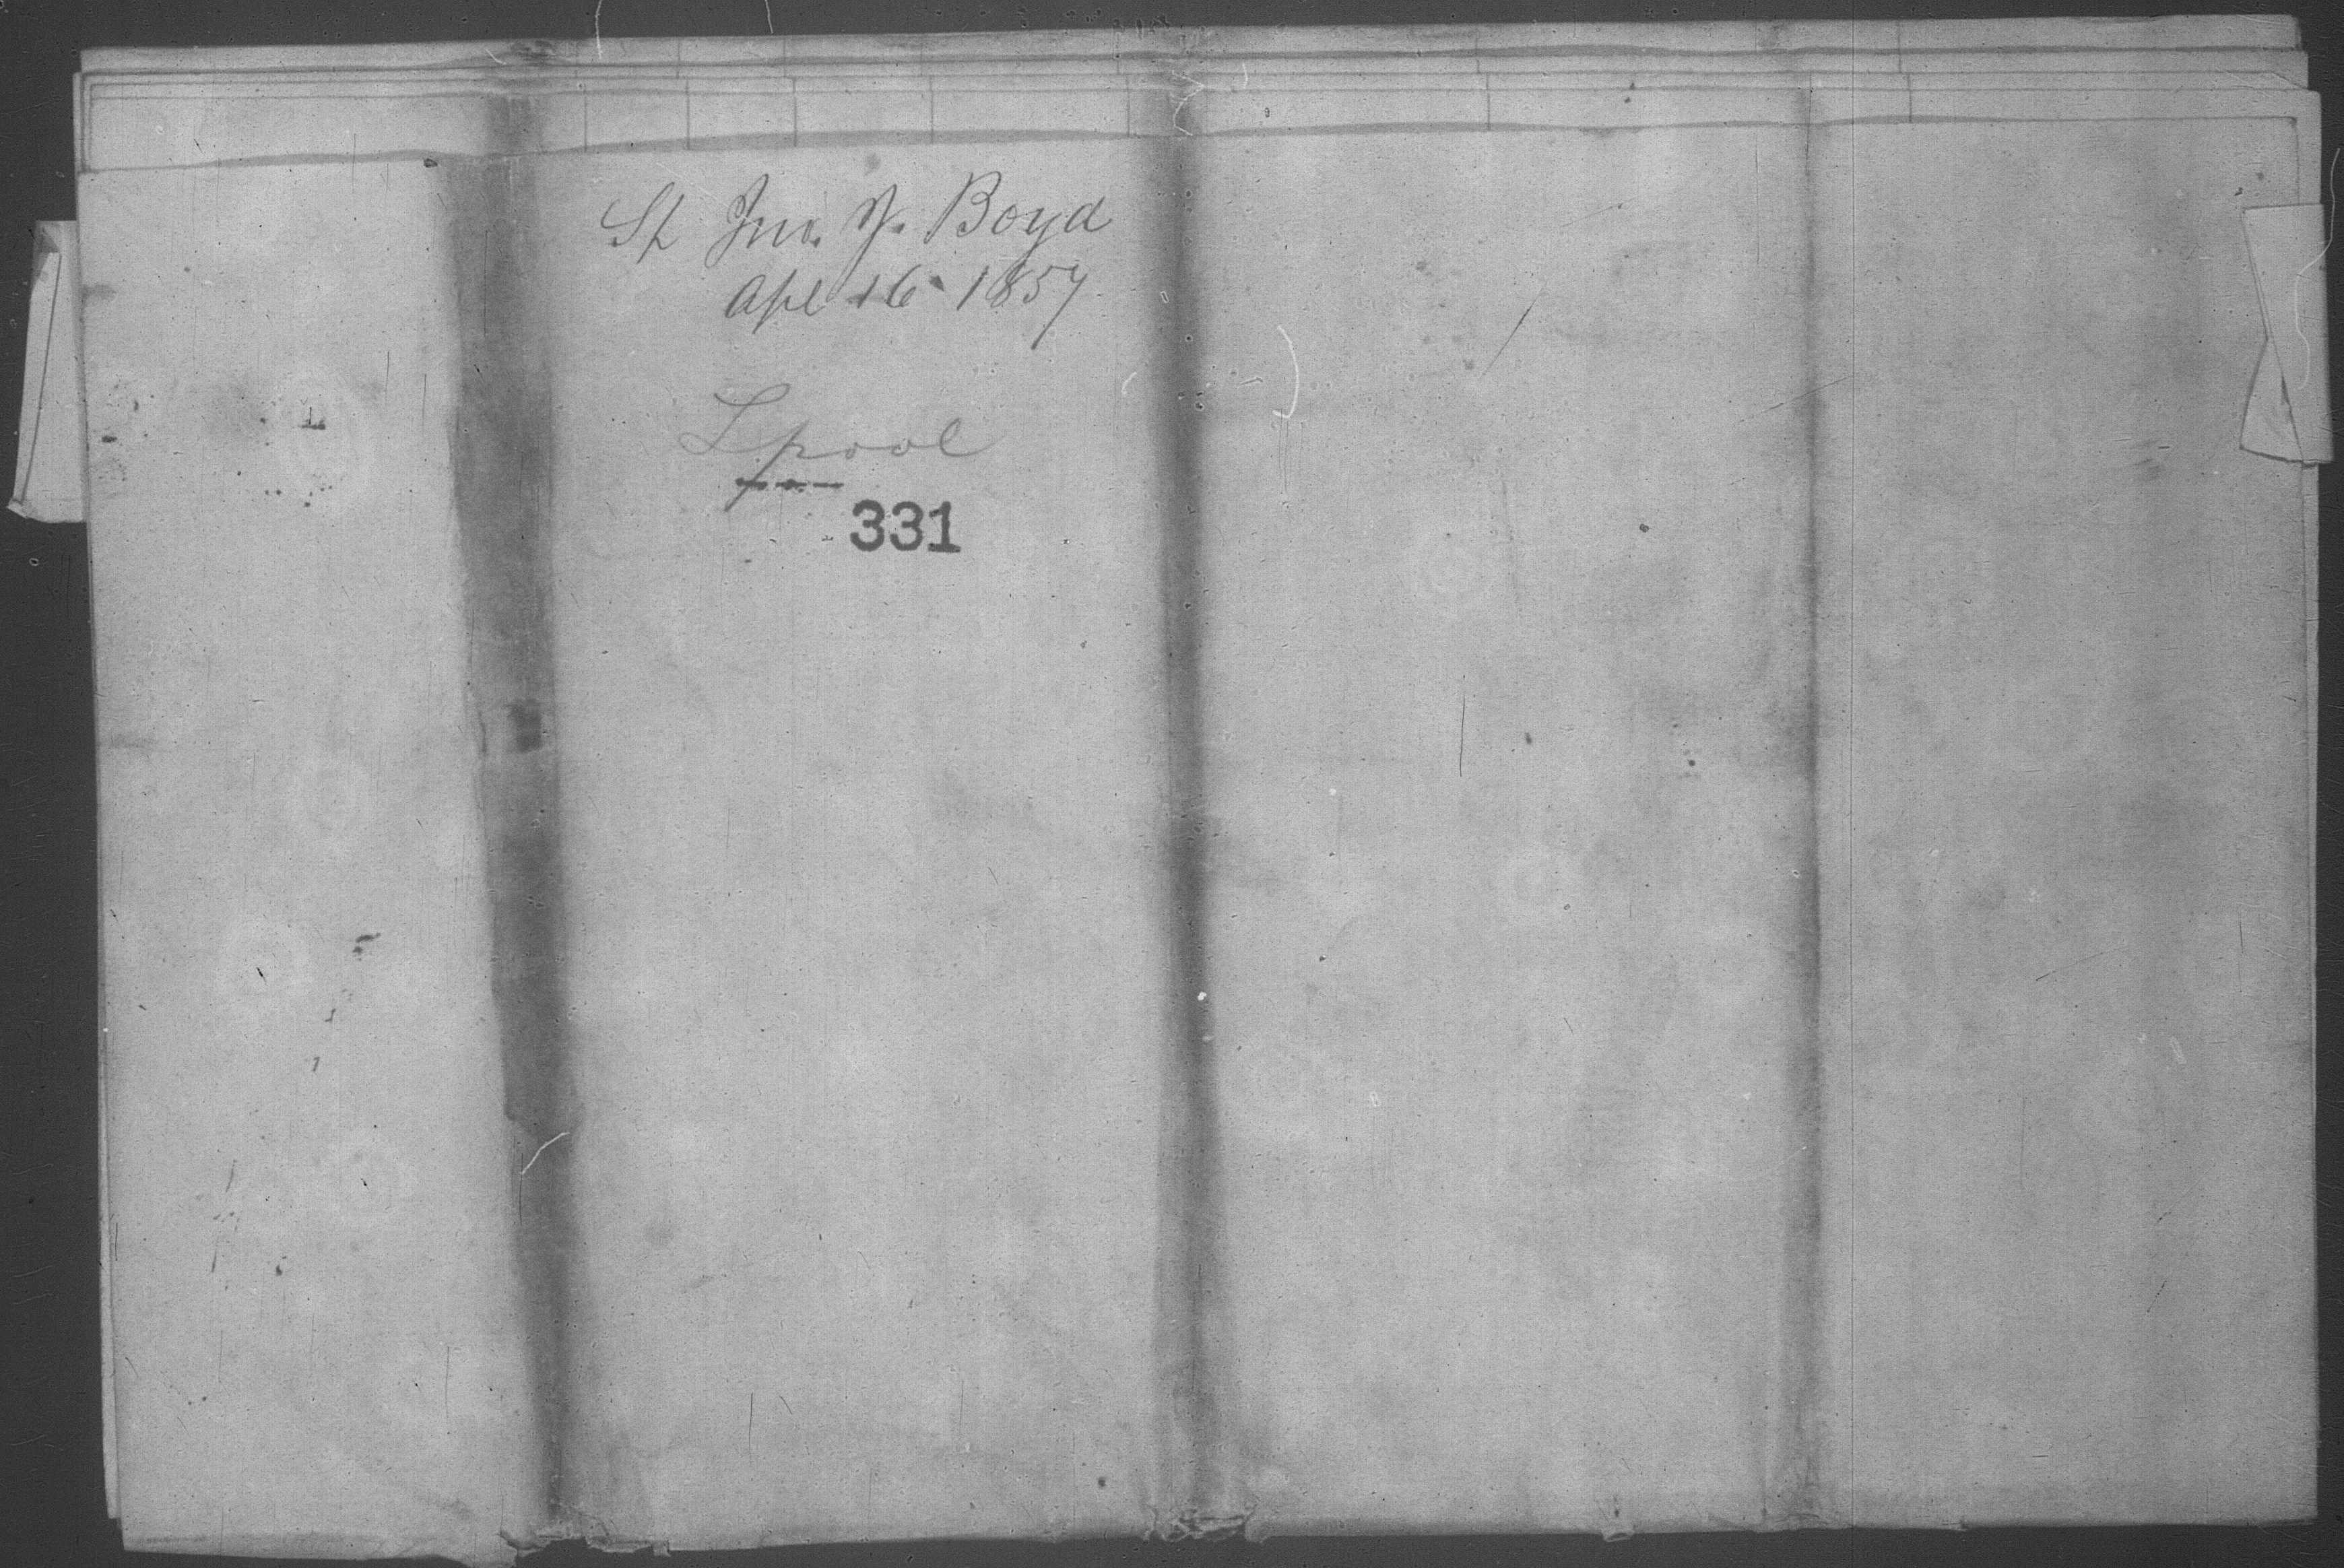 St Jno. J. Boyd
Apl 16 - 1857
Lpool
331